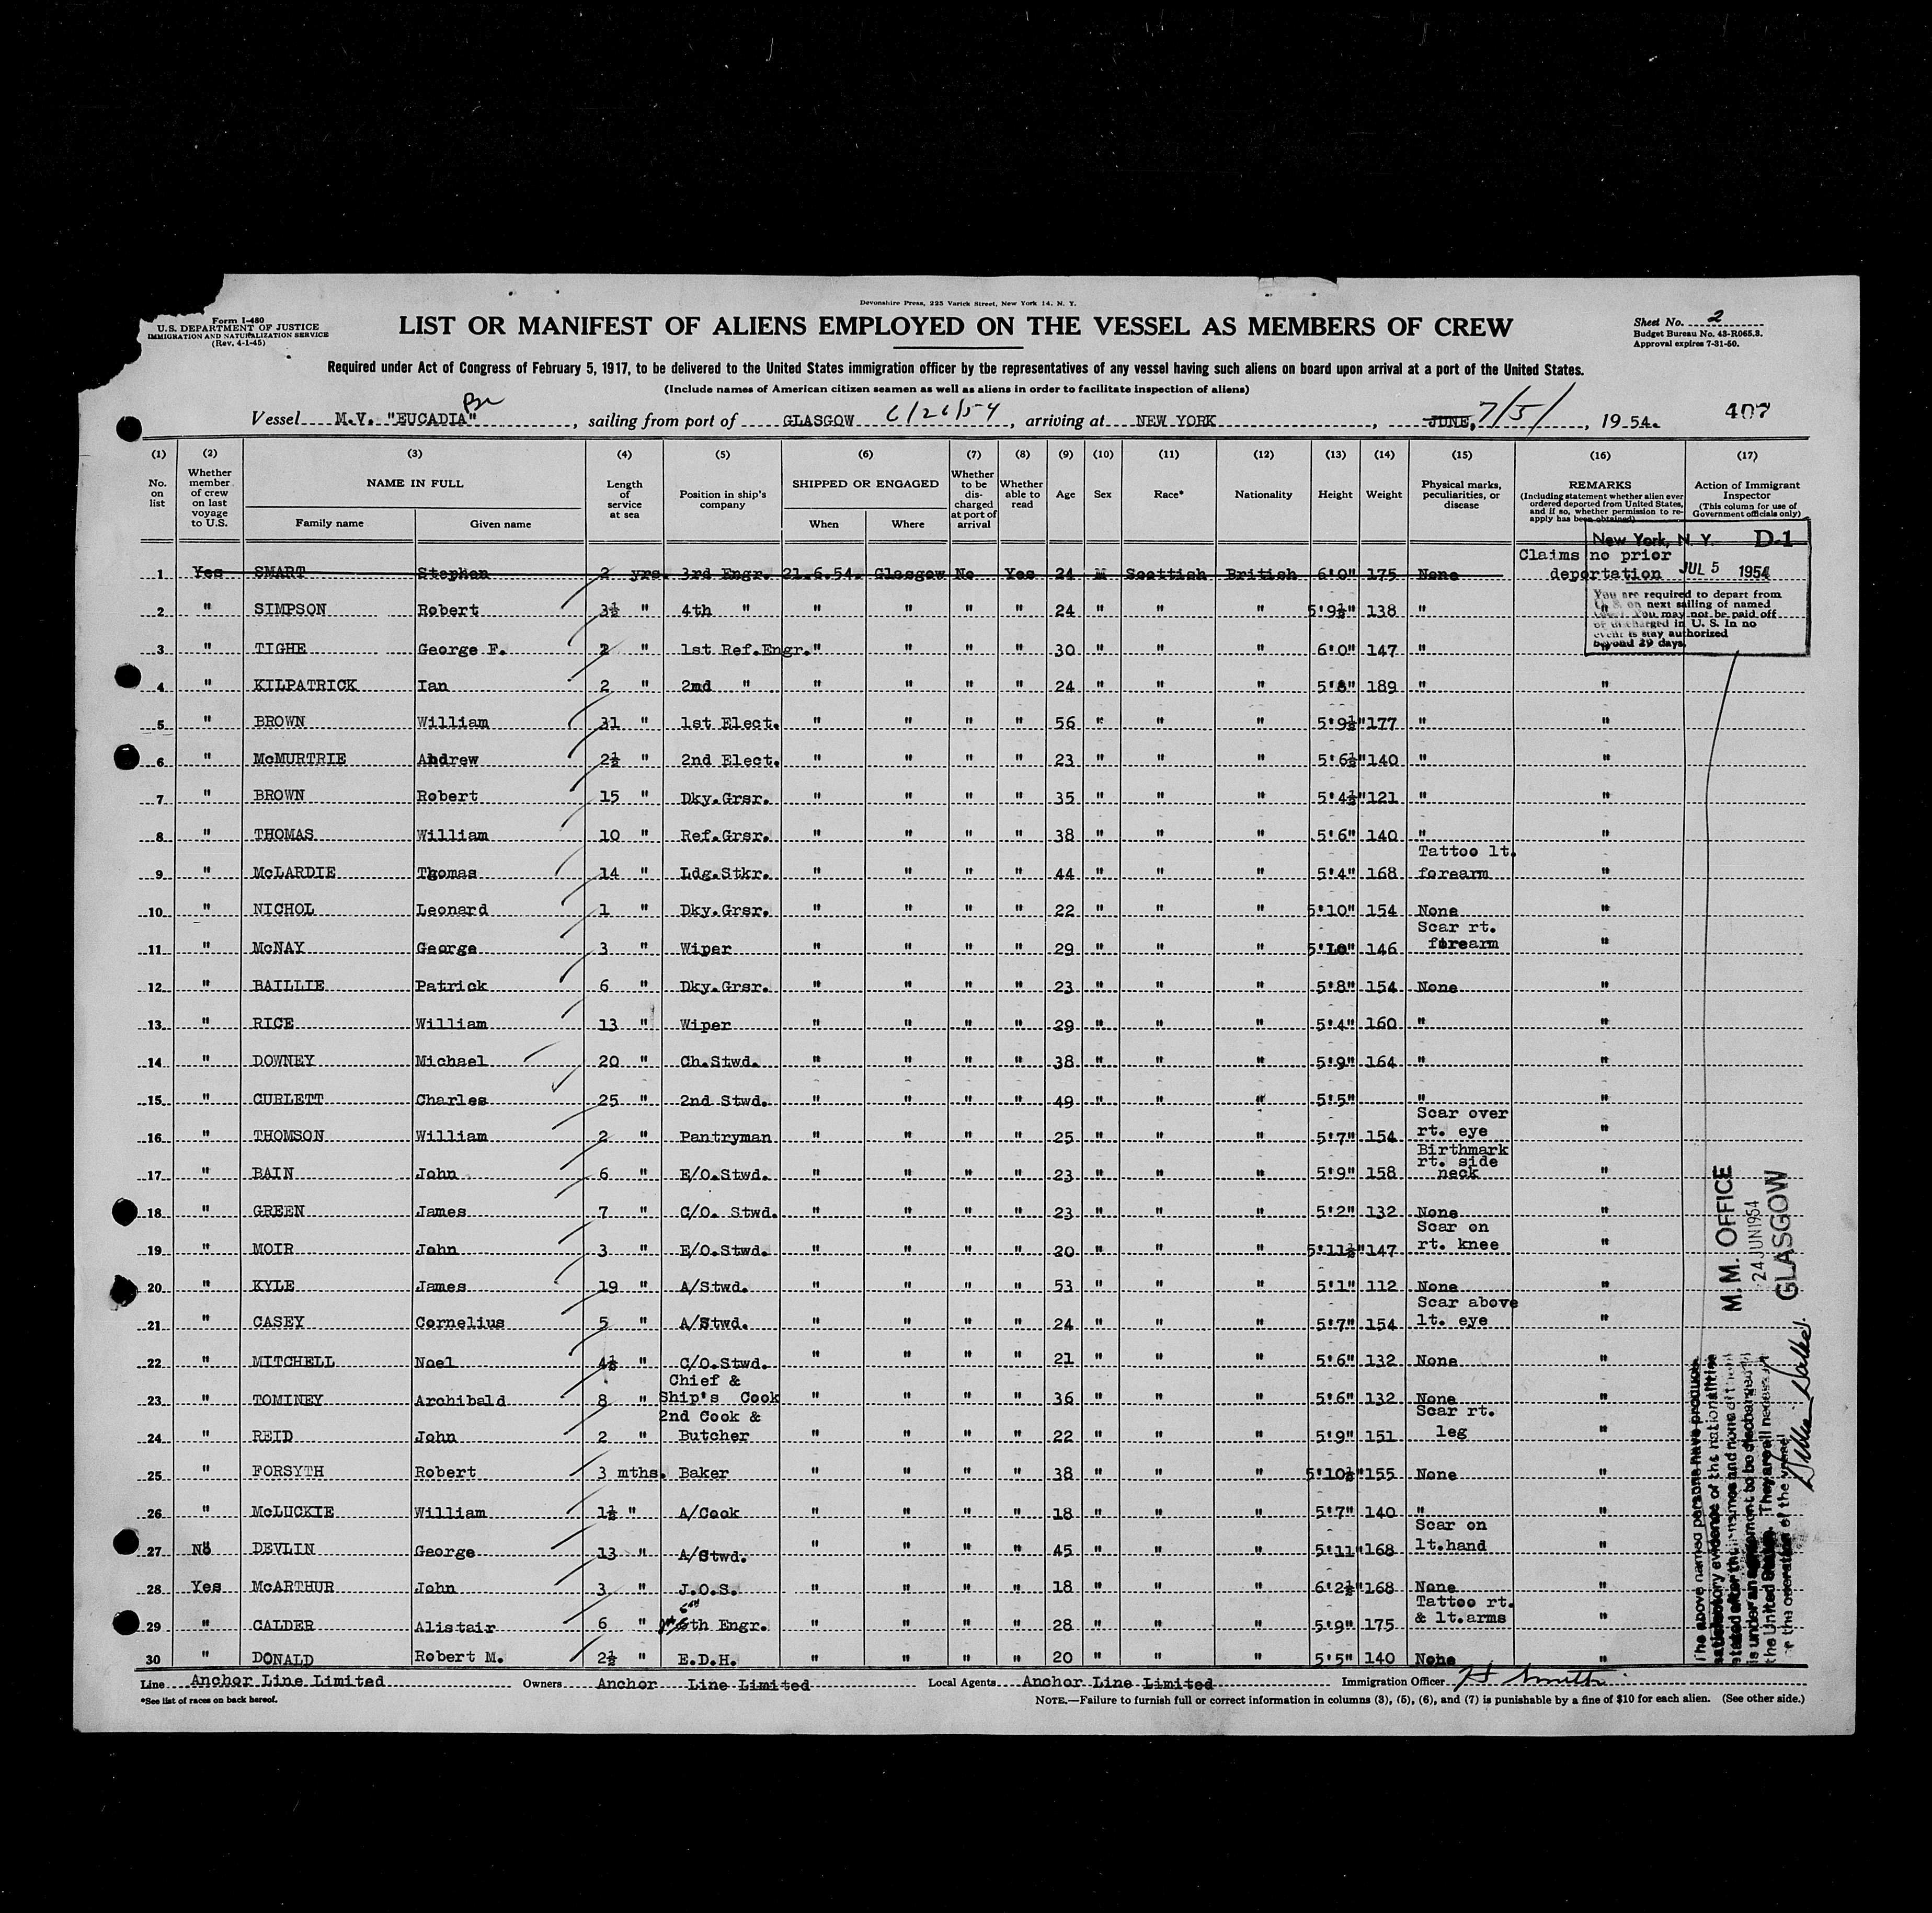 Devonshire Press, 225 Varick Street, New York 14, N. Y.
Form I-480
U.S. DEPARTMENT OF JUSTICE
IMMIGRATION AND NATURALIZATION SERVICE
(Rev. 4-1-45)
LIST OR MANIFEST OF ALIENS EMPLOYED ON THE VESSEL AS MEMBERS OF CREW
Sheet No. 2
Budget Bureau No. 43-R065.3.
Approval expires 7-31-50.
Required under Act of Congress of February 5, 1917, to be delivered to the United States immigration officer by the representatives of any vessel having such aliens on board upon arrival at a port of the United States.
(Include names of American citizen seamen as well as aliens in order to facilitate inspection of aliens)
Vessel M.V. "EUCADIA" Br, sailing from port of GLASGOW 6/26/54, arriving at NEW YORK, JUNE, 7/5/, 1954. 407
(1) (2) (3) (4) (5) (6) (7) (8) (9) (10) (11) (12) (13) (14) (15) (16) (17)
No. on list
Whether member of crew on last voyage to U.S.
NAME IN FULL
Family name Given name
Length of service at sea
Position in ship's company
SHIPPED OR ENGAGED
When Where
Whether to be discharged at port of arrival
Whether able to read
Age
Sex
Race*
Nationality
Height
Weight
Physical marks, peculiarities, or disease
REMARKS
(Including statement whether alien ever ordered deported from United States, and if so, whether permission to reapply has been obtained)
Action of Immigrant Inspector
(This column for use of Government officials only)
New York, N. Y. D-1
JUL 5 1954
You are required to depart from
U. S. on next sailing of named
vessel. You may not be paid off
or discharged in U. S. In no
event is stay authorized
beyond 29 days.
1 Yes SMART Stephen 2 yrs. 3rd Engr. 21.6.54. Glasgow No Yes 24 M Scottish British 6'0" 175 None Claims no prior deportation
2 " SIMPSON Robert 3½ " 4th " " " " " 24 " " " 5'9½" 138 "
3 " TIGHE George F. 2 " 1st Ref.Engr. " " " " 30 " " " 6'0" 147 " "
4 " KILPATRICK Ian 2 " 2nd " " " " " 24 " " " 5'8" 189 " "
5 " BROWN William 31 " 1st Elect. " " " " 56 " " " 5'9½" 177 " "
6 " McMURTRIE Andrew 2½ " 2nd Elect. " " " " 23 " " " 5'6½" 140 " "
7 " BROWN Robert 15 " Dky.Grsr. " " " " 35 " " " 5'4½" 121 " "
8 " THOMAS William 10 " Ref.Grsr. " " " " 38 " " " 5'6" 140 " "
9 " McLARDIE Thomas 14 " Ldg.Stkr. " " " " 44 " " " 5'4" 168 Tattoo lt. forearm "
10 " NICHOL Leonard 1 " Dky.Grsr. " " " " 22 " " " 5'10" 154 None "
11 " McNAY George 3 " Wiper " " " " 29 " " " 5'10" 146 Scar rt. forearm "
12 " BAILLIE Patrick 6 " Dky.Grsr. " " " " 23 " " " 5'8" 154 None "
13 " RICE William 13 " Wiper " " " " 29 " " " 5'4" 160 " "
14 " DOWNEY Michael 20 " Ch.Stwd. " " " " 38 " " " 5'9" 164 " "
15 " CURLETT Charles 25 " 2nd Stwd. " " " " 49 " " " 5'5" " "
16 " THOMSON William 2 " Pantryman " " " " 25 " " " 5'7" 154 Scar over rt. eye "
17 " BAIN John 6 " E/O.Stwd. " " " " 23 " " " 5'9" 158 Birthmark rt. side neck "
18 " GREEN James 7 " C/O. Stwd. " " " " 23 " " " 5'2" 132 None "
19 " MOIR John 3 " E/O.Stwd. " " " " 20 " " " 5'11½" 147 Scar on rt. knee "
20 " KYLE James 19 " A/Stwd. " " " " 53 " " " 5'1" 112 None "
21 " CASEY Cornelius 5 " A/Stwd. " " " " 24 " " " 5'7" 154 Scar above lt. eye "
22 " MITCHELL Noel 4½ " C/O.Stwd. " " " " 21 " " " 5'6" 132 None "
23 " TOMINEY Archibald 8 " Chief & Ship's Cook " " " " 36 " " " 5'6" 132 None "
24 " REID John 2 " 2nd Cook & Butcher " " " " 22 " " " 5'9" 151 Scar rt. leg "
25 " FORSYTH Robert 3 mths. Baker " " " " 38 " " " 5'10½" 155 None "
26 " McLUCKIE William 1½ " A/Cook " " " " 18 " " " 5'7" 140 " "
27 No DEVLIN George 13 " A/Stwd. " " " " 45 " " " 5'11" 168 Scar on lt.hand "
28 Yes McARTHUR John 3 " J.O.S. " " " " 18 " " " 6'2½" 168 None "
29 " CALDER Alistair 6 " 6th Engr. " " " " 28 " " " 5'9" 175 Tattoo rt. & lt.arms "
30 " DONALD Robert M. 2½ " E.D.H. " " " " 20 " " " 5'5" 140 None "
M. M. OFFICE
24 JUN 1954
GLASGOW
The above named persons have produced
satisfactory evidence of the nationalities
stated after their names and none of them
is under an agreement to be discharged in
the United States. They are all necessary
for the operation of the vessel
Line Anchor Line Limited Owners Anchor Line Limited Local Agents Anchor Line Limited Immigration Officer H Smith
*See list of races on back hereof.
NOTE.—Failure to furnish full or correct information in columns (3), (5), (6), and (7) is punishable by a fine of $10 for each alien. (See other side.)